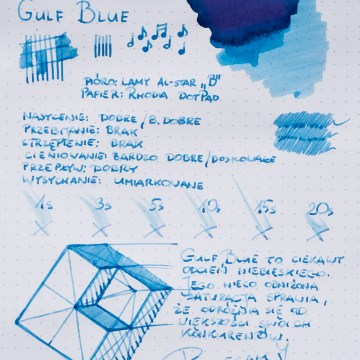 Gulf Blue
Pióro: Lamy Al-Star "B"
Papier: Rhodia DotPad
Nasycenie: dobre/b. dobre
Przebijanie: brak
Strzępienie: brak
Cieniowanie: bardzo dobre/doskonałe
Przepływ: dobry
Wysychanie: umiarkowane
1s 3s 5s 10s 15s 20s
Gulf Blue to ciekawy
odcień niebieskiego.
Jego nieco obniżona
saturacja sprawia,
że odróżnia się od
większości swoich
konkurentów.